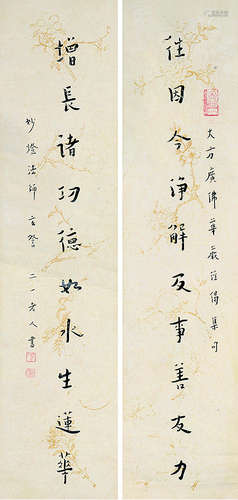 大方廣佛華嚴經偈集句
往因今淨解及事善友力
增長諸功德如水生蓮華
妙燈法師 詧 二一老人書